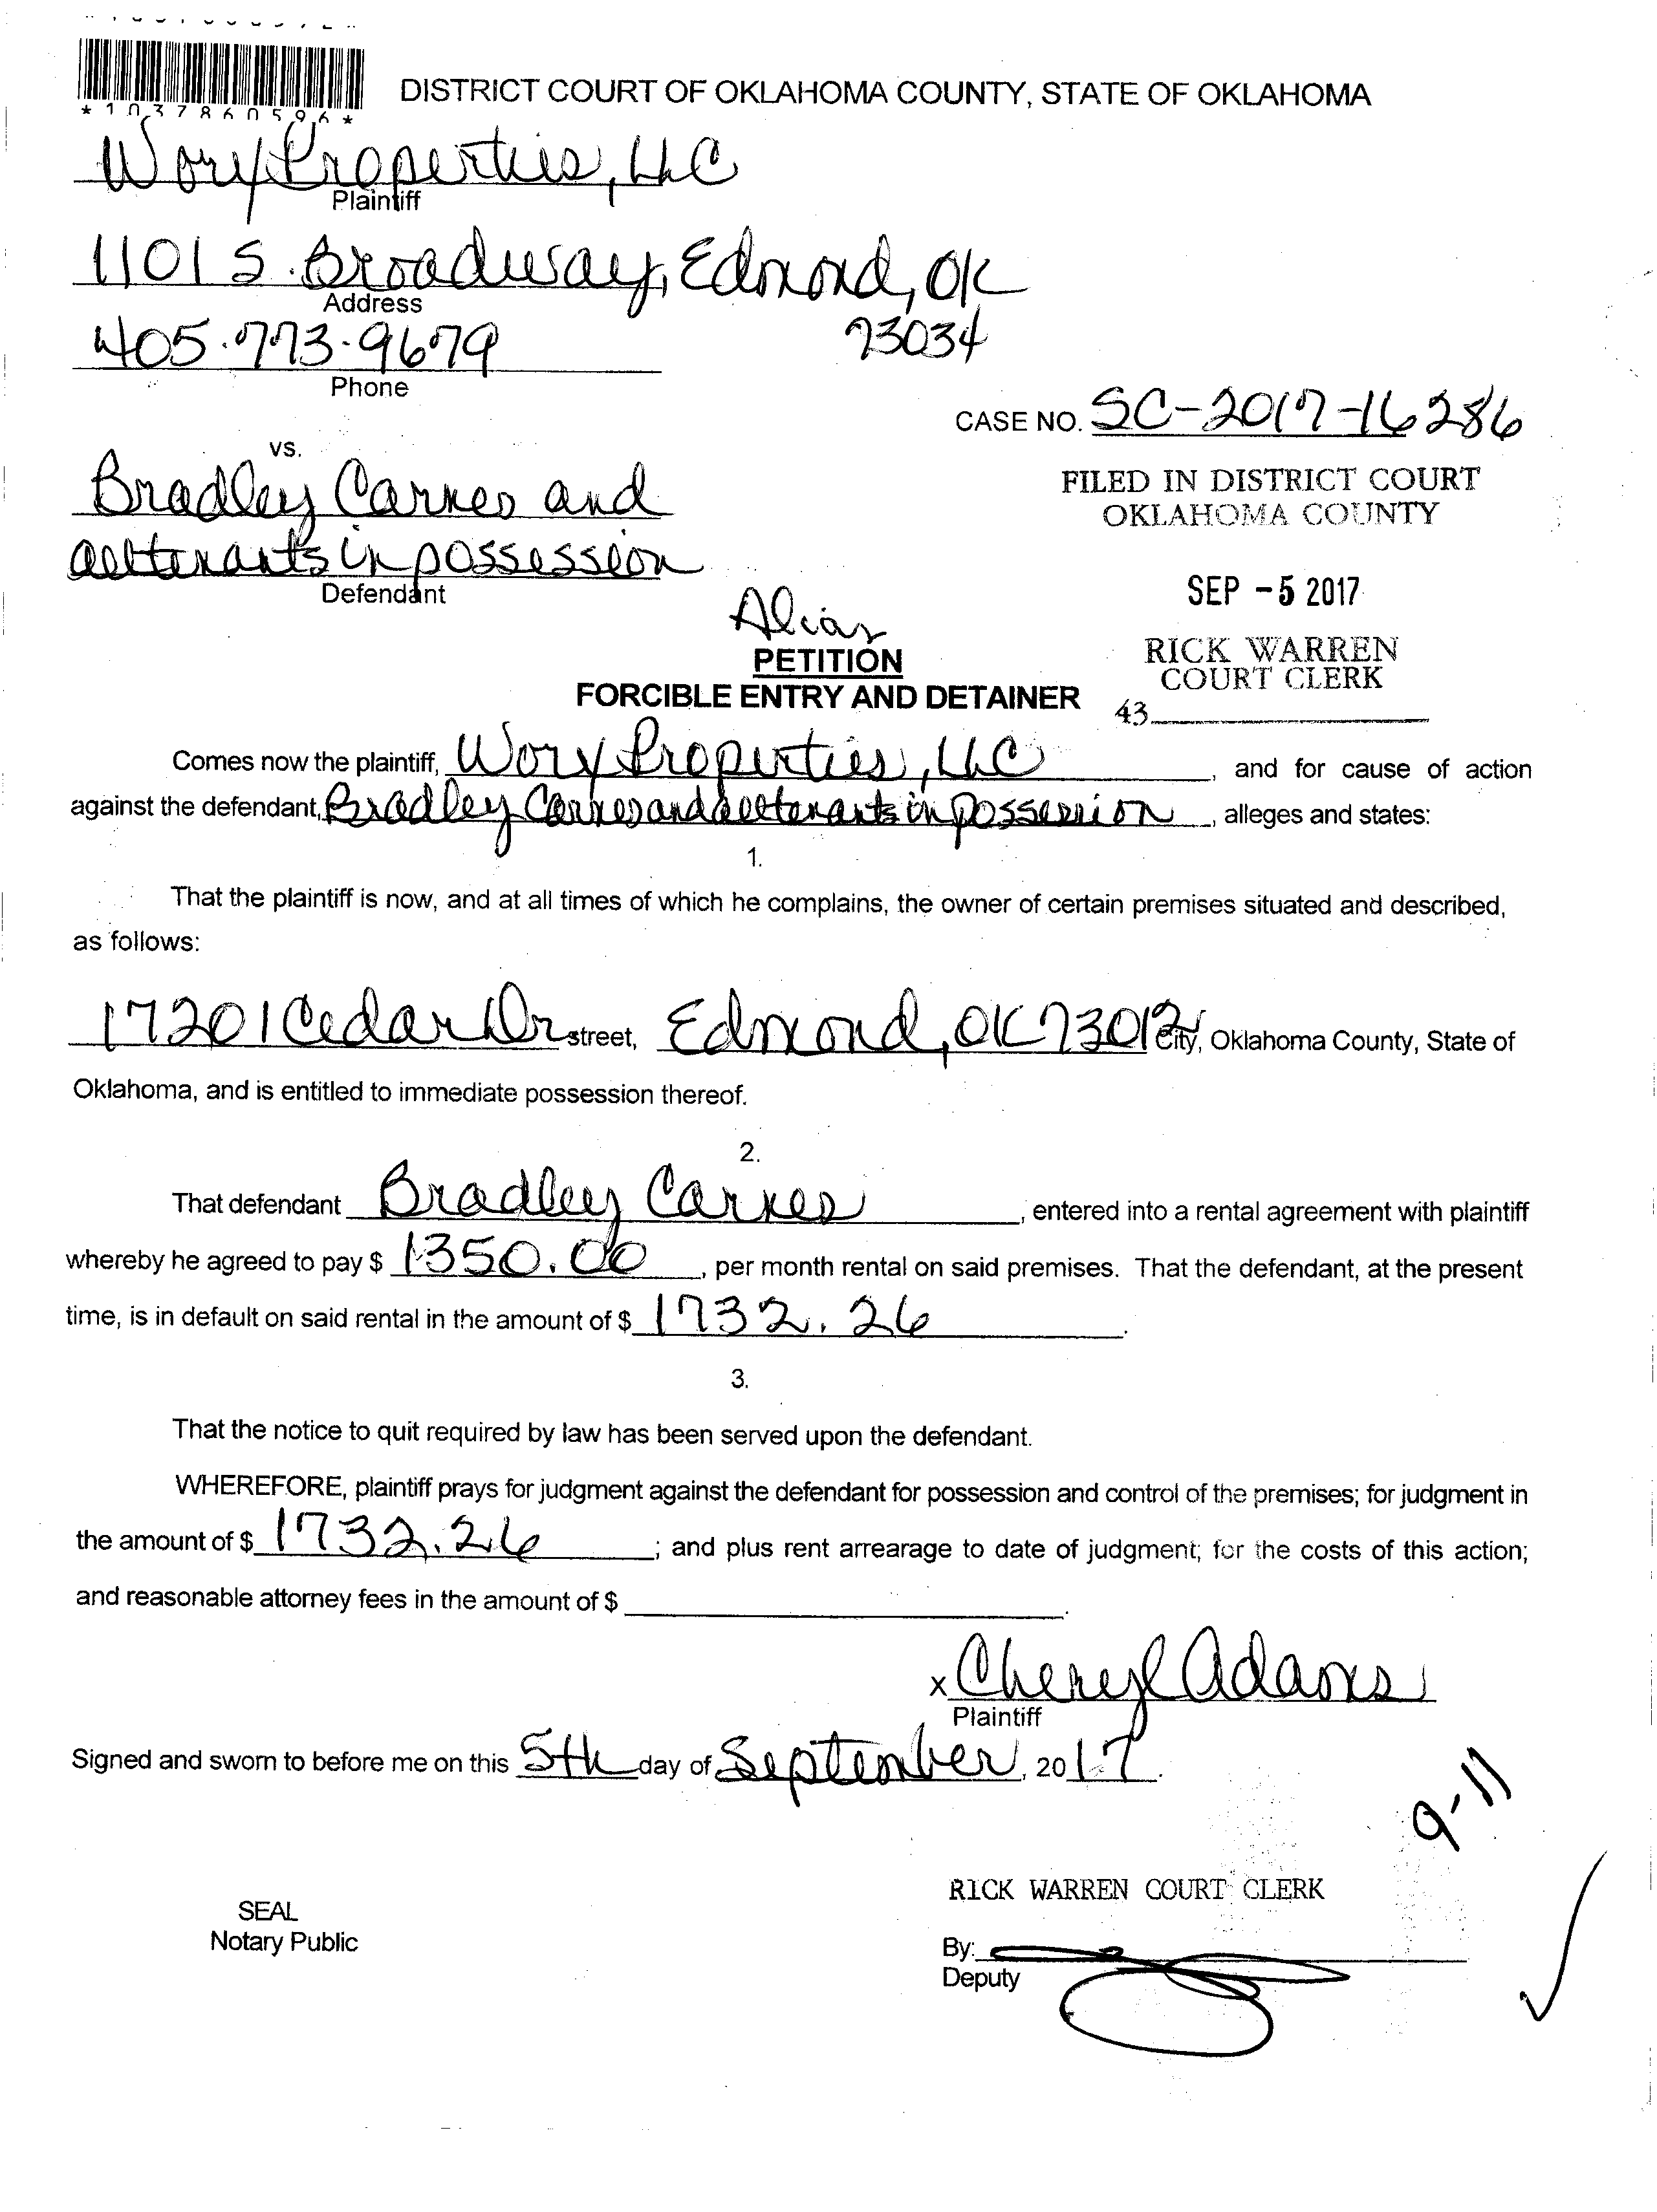 *1037860596*
DISTRICT COURT OF OKLAHOMA COUNTY, STATE OF OKLAHOMA
Wory Properties, LLC
Plaintiff
1101 S. Broadway, Edmond, OK
Address
405.773.9679 73034
Phone
CASE NO. SC-2017-16286
vs.
Bradley Carnes and
all tenants in possession
Defendant
FILED IN DISTRICT COURT
OKLAHOMA COUNTY
SEP -5 2017
RICK WARREN
COURT CLERK
43
Alias
PETITION
FORCIBLE ENTRY AND DETAINER
Comes now the plaintiff, Wory Properties, LLC, and for cause of action
against the defendant, Bradley Carnes and all tenants in possession, alleges and states:
1.
That the plaintiff is now, and at all times of which he complains, the owner of certain premises situated and described,
as follows:
17201 Cedar Dr street, Edmond, OK 73012 City, Oklahoma County, State of
Oklahoma, and is entitled to immediate possession thereof.
2.
That defendant Bradley Carnes, entered into a rental agreement with plaintiff
whereby he agreed to pay $ 1350.00, per month rental on said premises. That the defendant, at the present
time, is in default on said rental in the amount of $ 1732.26.
3.
That the notice to quit required by law has been served upon the defendant.
WHEREFORE, plaintiff prays for judgment against the defendant for possession and control of the premises; for judgment in
the amount of $ 1732.26; and plus rent arrearage to date of judgment; for the costs of this action;
and reasonable attorney fees in the amount of $
x Cheryl Adams
Plaintiff
Signed and sworn to before me on this 5th day of September, 2017.
9-11
RICK WARREN COURT CLERK
SEAL
Notary Public
By:
Deputy